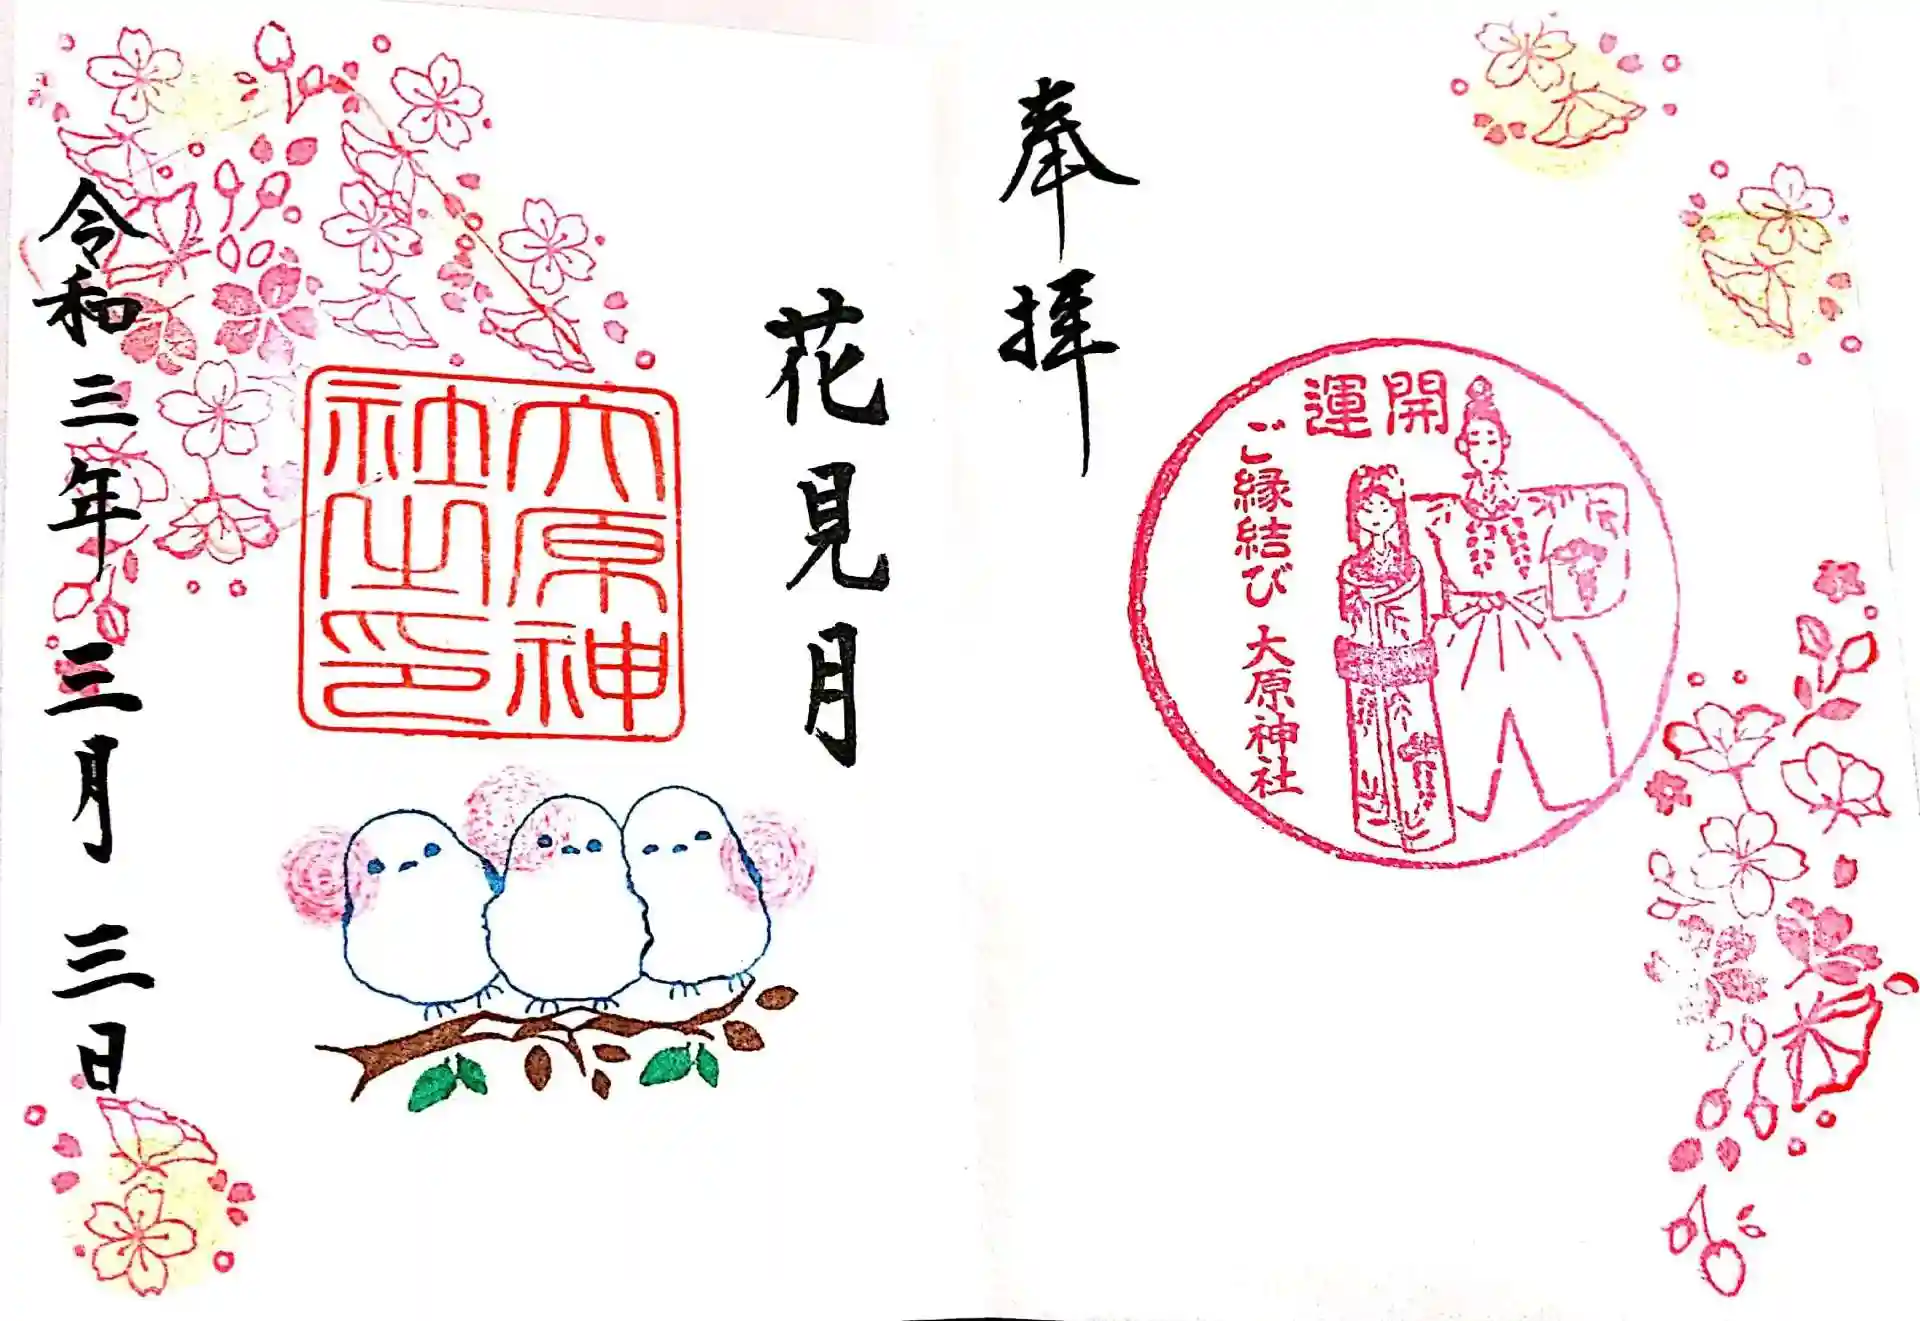 奉拝
開運
ご縁結び 大原神社
花見月
大原神
社之印
令和三年三月三日